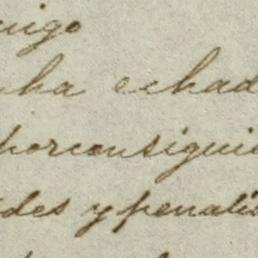 migo
ha echad
porconsigui
des y penalis